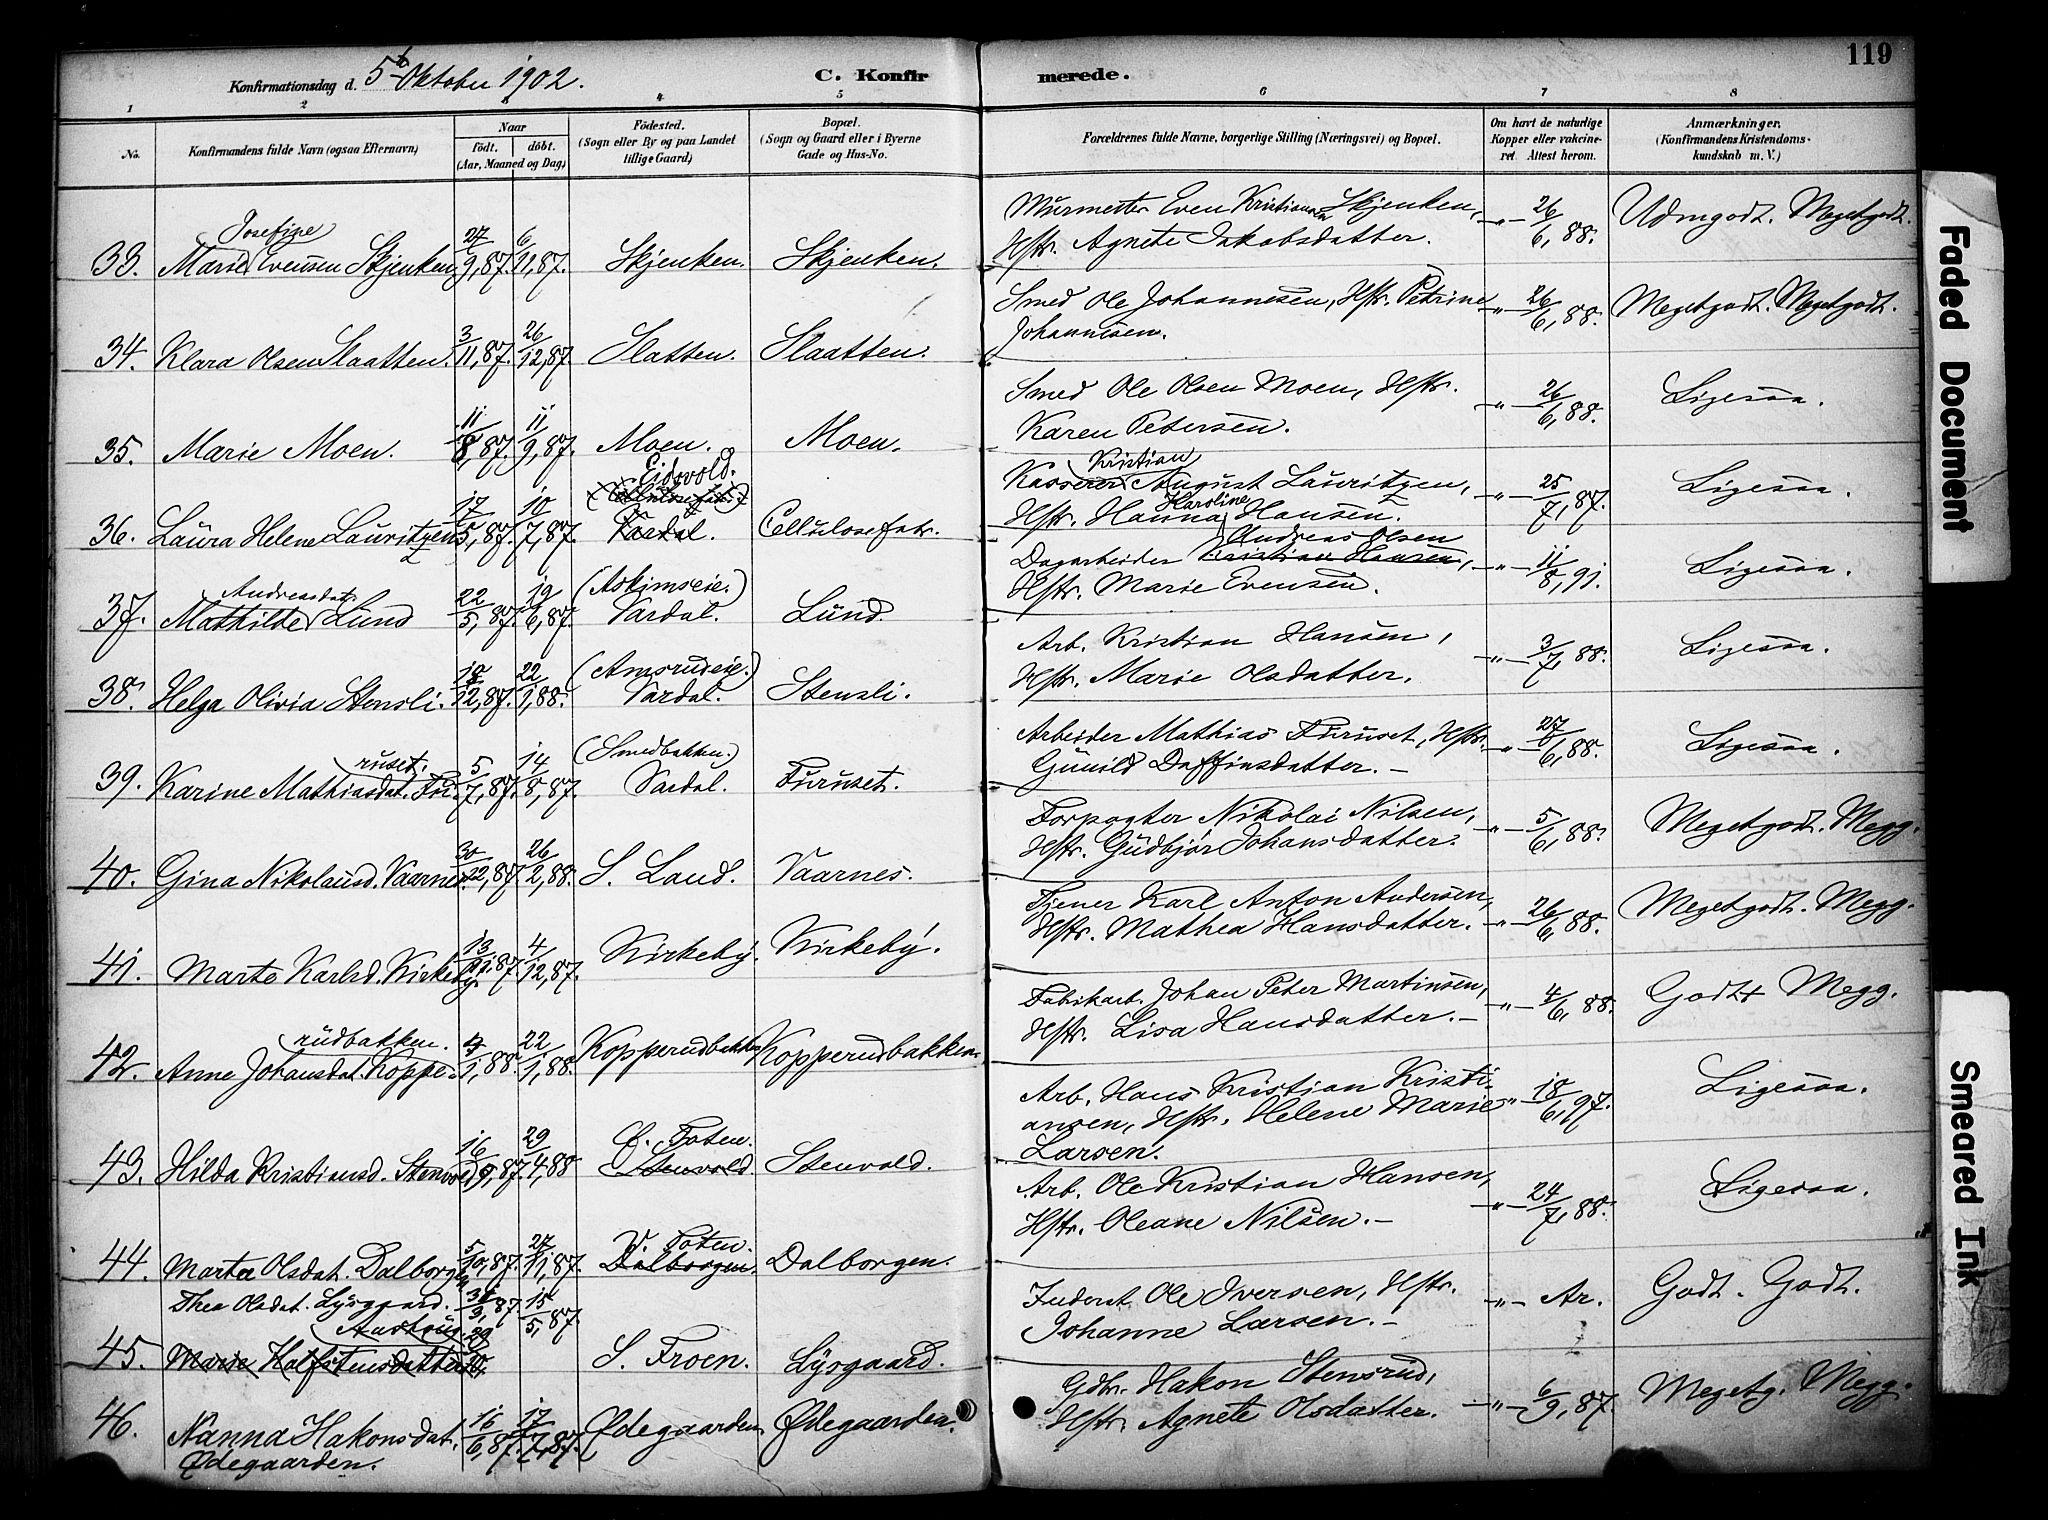 119
Konfirmationsdag d. 5t Oktober 1902.
C. Konfirmerede.
1 2 3 4 5 6 7 8
No.
Konfirmandens fulde Navn (ogsaa Efternavn)
Naar
födt. döbt.
(Aar, Maaned og Dag)
Födested.
(Sogn eller By og paa Landet tillige Gaard)
Bopæl.
(Sogn og Gaard eller i Byerne Gade og Hus-No.
Forældrenes fulde Navne, borgerlige Stilling (Næringsvei) og Bopæl.
Om havt de naturlige Kopper eller vakcineret Attest herom.
Anmærkninger.
(Konfirmandens Kristendomskundskab m. V.)
33. Marie Josefine Evensen Skjenken 27/9,87. 6/11,87. Skjenken. Skjenken.
Murmester Even Kristiansen Skjenken,
Hstr. Agnete Jakobsdatter. -"- 26/6,88. Udmgodt. Megetgodt.
34. Klara Olsen Slaatten. 3/11,87. 26/12,87. Slatten. Slaatten.
Smed Ole Johannesen, Hstr. Petrine
Johannesen. -"- 26/6,88. Megetgodt. Megetgodt.
35. Marie Moen. 11/8,87. 11/9,87. Moen. Moen.
Smed Ole Olsen Moen, Hstr.
Karen Petersen. -"- 26/6,88. Ligesaa.
36. Laura Helene Lauritzen 17/5,87. 10/7,87. Eidsvold. (Cellulosefabr.) Vardal. Cellulosefabr.
Kasserer Kristian August Lauritzen,
Hstr. Hanna Karoline Hansen. -"- 25/7,87. Ligesaa.
37. Mathilde Andreasdat. Lund 22/5,87. 19/6,87. (Askimseie.) Vardal. Lund.
Dagarbeider Kristian Hansen, Andreas Olsen
Hstr. Marie Evensen. -"- 11/8,91. Ligesaa.
38. Helga Olivia Stensli. 18/12,87. 22/1,88. (Amsrudeie.) Vardal. Stensli.
Arb. Kristian Hansen,
Hstr. Marie Olsdatter. -"- 3/7,88. Ligesaa.
39. Karine Mathiasdat. Furuset. 5/7,87. 14/8,87. (Smedbakken.) Vardal. Furuset.
Arbeider Mathias Furuset, Hstr.
Gunild Daffinsdatter. - -"- 27/6,88. Ligesaa.
40. Gina Nikolausd. Vaarnes. 30/12,87. 26/2,88. S. Land. Vaarnes.
Forpagter Nikolai Nilsen,
Hstr. Gudbjør Johansdatter. -"- 5/6,88. Megetgodt. Megg.
41. Marte Karlsd. Kirkeby 13/11,87. 4/12,87. Kirkeby. Kirkeby.
Tjener Karl Anton Andersen,
Hstr. Mathea Hansdatter. -"- 26/6,88. Megetgodt. Megg.
42. Anne Johansdat. Kopperudbakken. 4/1,88. 22/1,88. Kopperudbakken Kopperudbakken.
Fabrikarb. Johan Peter Martinsen,
Hstr. Lisa Hansdatter. - -"- 4/6,88. Godt+ Megg.
43. Hilda Kristiansd. Stenvold 16/9,87. 29/4,88 Ø. Toten. Stenvold Stenvold.
Arb. Hans Kristian Kristiansen,
Hstr. Helene Marie
Larsen. -"- 18/6,97. Ligesaa.
44. Marte Olsdat. Dalborgen 5/10,87. 27/11,87. V. Toten. Dalborgen. Dalborgen.
Arb. Ole Kristian Hansen,
Hstr. Oleane Nilsen. - -"- 24/7,88. Ligesaa.
45. Thea Olsdat. Lysgaard. 15/5,87 Marie Halfstensdatter S. Froen. Lysgaard.
Inderst Ole Iversen, Hstr.
Johanne Larsen. - -"- Ar. Godt. Godt.
46. Nanna Hakonsdat. Ødegaarden. 16/6,87. 17/7,87. Ødegaarden Ødegaarden.
Gdbr. Hakon Stensrud,
Hstr. Agnete Olsdatter. -"- 6/9,87. Megetg. Megg.
Faded Document
Smeared Ink